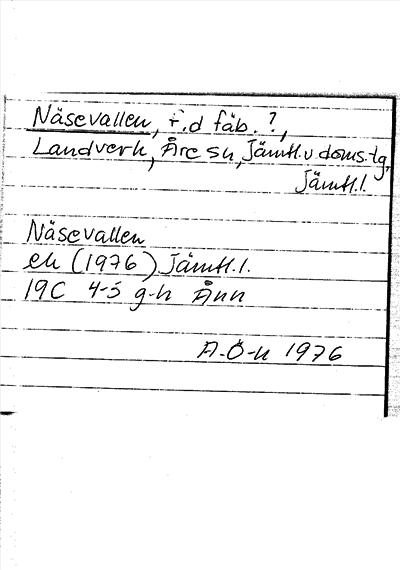 Näsevallen, f.d fäb.?,
Landverk, Åre sn, Jämtl.v.doms.tg,
Jämtl.l.
Näsevallen
ek (1976) Jämtl.l.
19C 4-5 g-h Ånn
A-Ö-k 1976